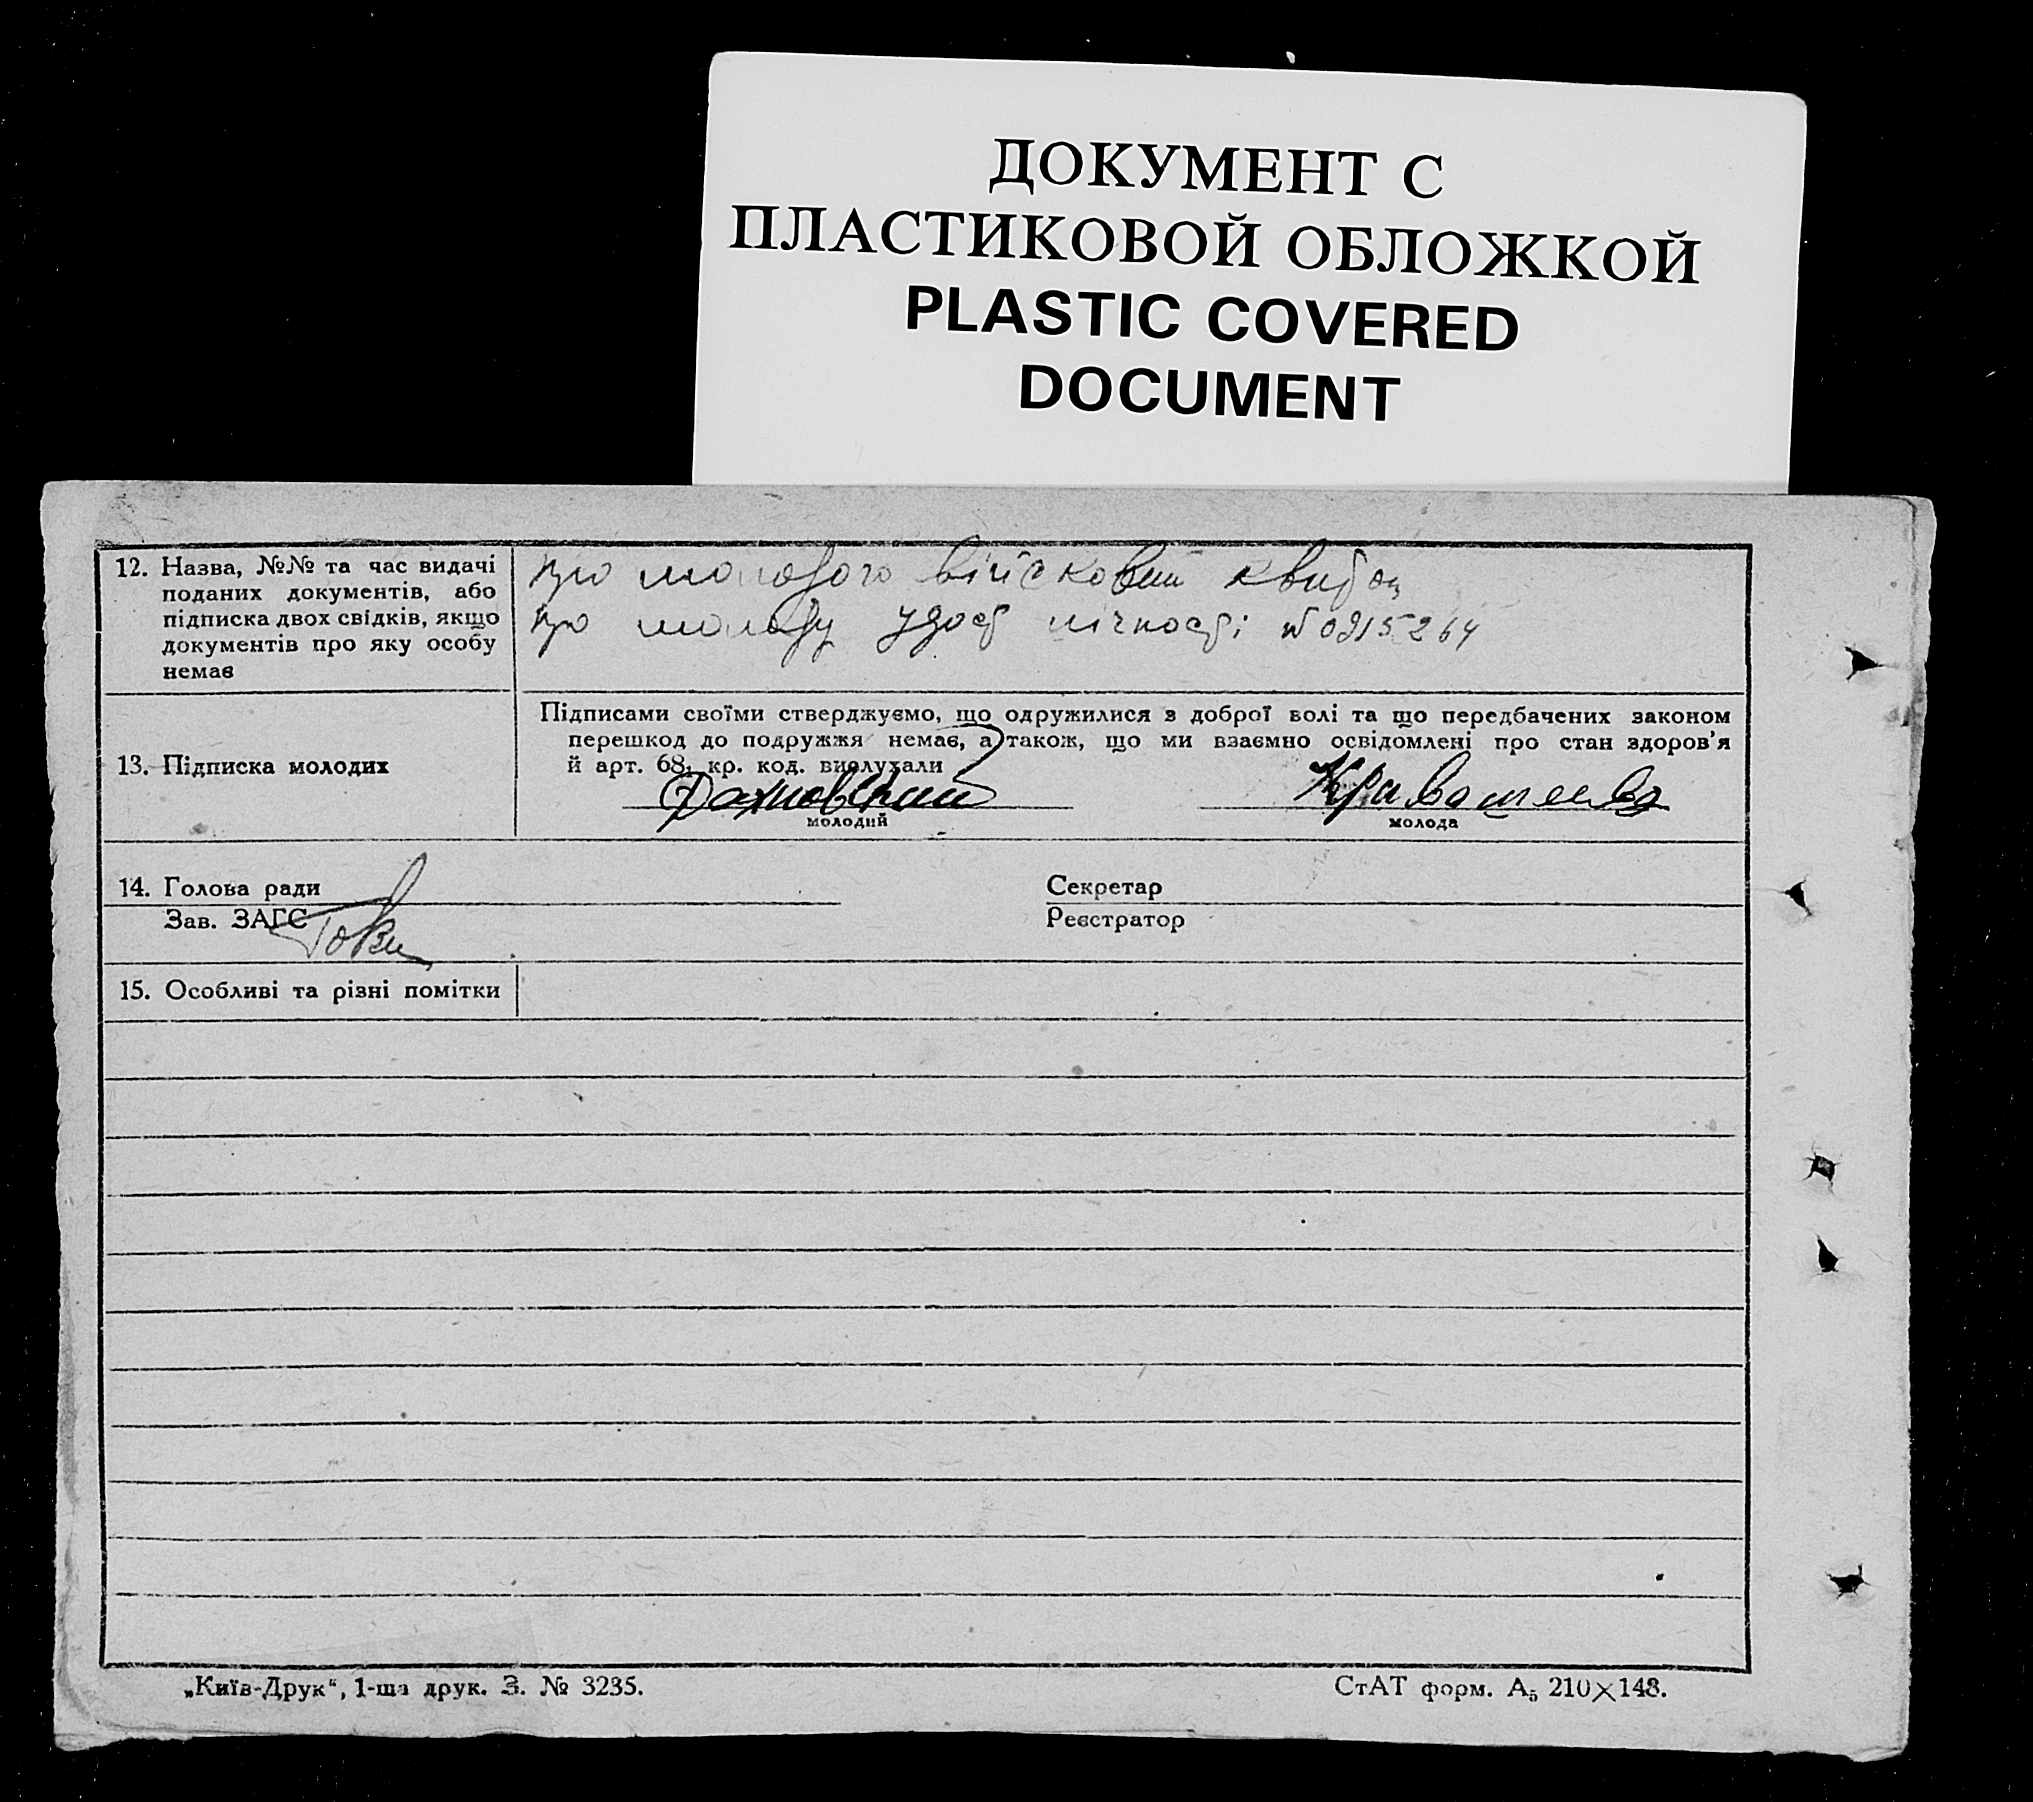 ДОКУМЕНТ С
ПЛАСТИКОВОЙ ОБЛОЖКОЙ
PLASTIC COVERED
DOCUMENT
12. Назва, №№ та час видачі
поданих документів, або
підписка двох свідків, якщо
документів про яку особу
немає
про молодого військовий квиток
про молоду удост лічності № 0915264
13. Підписка молодих
Підписами своїми стверджуємо, що одружилися з доброї волі та що передбачених законом
перешкод до подружжя немає, а також, що ми взаємно освідомлені про стан здоров'я
й арт. 68, кр. код. вислухали
молодий
молода
14. Голова ради
Зав. ЗАГС
Секретар
Реєстратор
15. Особливі та різні помітки
„Київ-Друк“, 1-ша друк. З. № 3235.
СтАТ форм. А₅ 210×148.